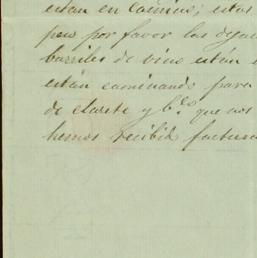 estan en camino; estas
pero por favor las deja
barriles de vino están
están caminando para
de clarete y b.co que nos
hemos recibido factura